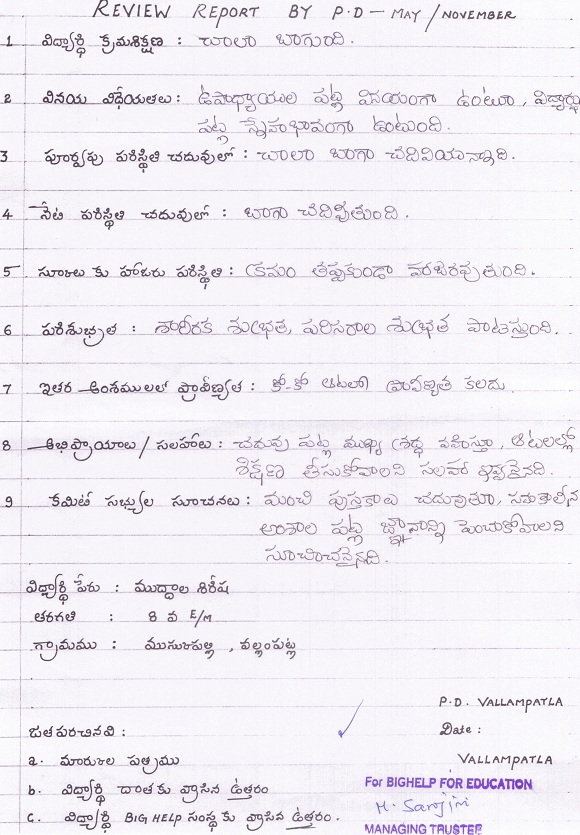 REVIEW REPORT BY P.D - MAY / NOVEMBER
1 విద్యార్థి క్రమశిక్షణ : చాలా బాగుంది.
2 వినయ విధేయతలు : ఉపాధ్యాయుల పట్ల వినయంగా ఉంటూ, విద్యార్థుల
పట్ల స్నేహభావంగా ఉంటుంది.
3 పూర్వపు పరిస్థితి చదువులో : చాలా బాగా చదివియున్నాది.
4 నేటి పరిస్థితి చదువులో : బాగా చదివుతుంది.
5 సూకలు కు హాజరు పరిస్థితి : క్రమం తప్పకుండా హాజరవుతుంది.
6 పరిశుభ్రత : శారీరక శుభ్రత, పరిసరాల శుభ్రత పాటిస్తుంది.
7 ఇతర అంశములలో ప్రావీణ్యత : ఖో-ఖో ఆటలో ప్రావీణ్యత కలదు.
8 అభిప్రాయాలు / సలహాలు : చదువు పట్ల ముఖ్య శ్రద్ధ వహిస్తూ, ఆటలల్లో
శిక్షణ తీసుకోవాలని సలహా ఇవ్వడైనది.
9 కమిటీ సభ్యుల సూచనలు : మంచి పుస్తకాలు చదువుతూ, సమకాలీన
అంశాల పట్ల జ్ఞానాన్ని పెంచుకోవాలని
సూచించనైనది.
విద్యార్థి పేరు : ముద్దాల శిరీష
తరగతి : 8 వ E/M
గ్రామము : ముసుకుపల్లి, వల్లంపట్ల
P.D. VALLAMPATLA
జతపరచినవి : Date :
a. మార్కుల పత్రము VALLAMPATLA
b. విద్యార్థి దాతకు వ్రాసిన ఉత్తరం For BIGHELP FOR EDUCATION
c. విద్యార్థి BIG HELP సంస్థకు వ్రాసిన ఉత్తరం.
MANAGING TRUSTEE